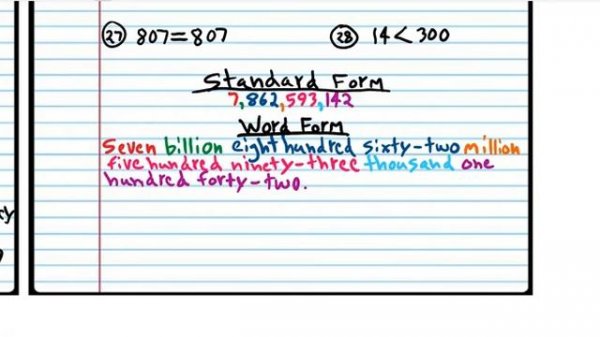 27 807=807 28 14<300
Standard Form
7,862,593,142
Word Form
Seven billion eight hundred sixty-two million
five hundred ninety-three thousand one
hundred forty-two.